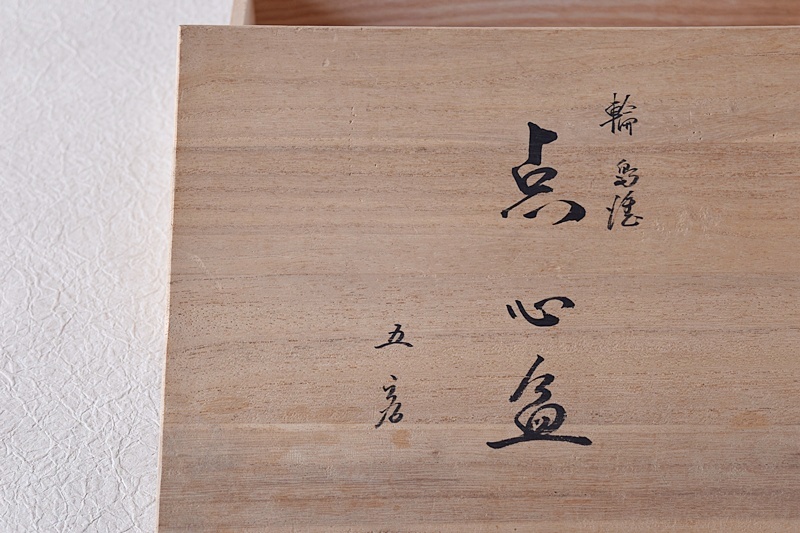 輪島塗
点心盆
五客